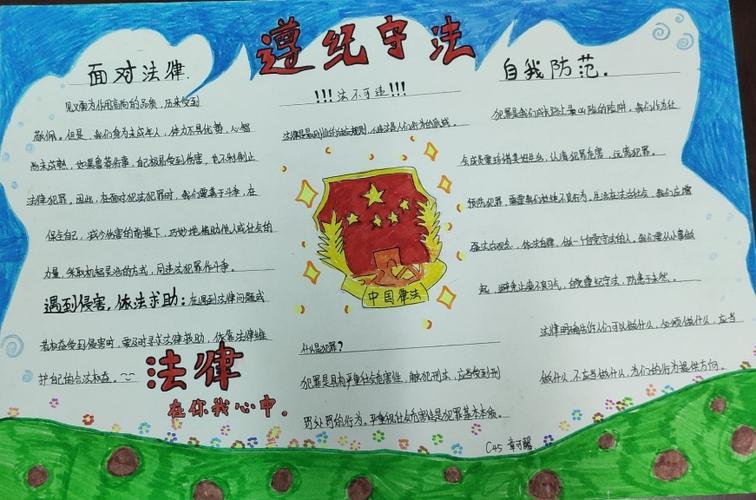 遵纪守法
面对法律.
见义勇为作用高尚的品质，历来受到
敬佩。但是，我们身为未成年人，体力不具优势，心智
尚未成熟，如果鲁莽行事，自己极易受到伤害，也不利制止
法律犯罪。因此，在面对犯法犯罪时，我们需善于斗争，在
保全自己，减少伤害的前提下，巧妙地借助他人或社会的
力量，采取机智灵活的方式，同违法犯罪作斗争。
遇到侵害，依法求助：在遇到法律问题或
者权益受到侵害时，要及时寻求法律救助，依靠法律维
护自己的合法权益。
法律
在你我心中。
!!!法不可违!!!
中国律法
什么是犯罪？
犯罪是具有严重社会危害性，触犯刑法，应当受到刑
罚处罚的行为，严重危害社会性是犯罪基本本质。
自我防范。
犯罪是我们成长路上最凶险的陷阱，我们作为社
会成员要珍惜美好生活，认清犯罪危害，远离犯罪。
预防犯罪，需要我们杜绝不良行为，生活在法治社会，我们应增
强法治观念，依法自律，做一个自觉守法的人，我们要从小事做
起，避免沾染不良习气，自觉遵纪守法，防患于未然。
法律明确告诉人们可以做什么，必须做什么，应当
做什么，不应当做什么，为们的行为提供方向。
C45